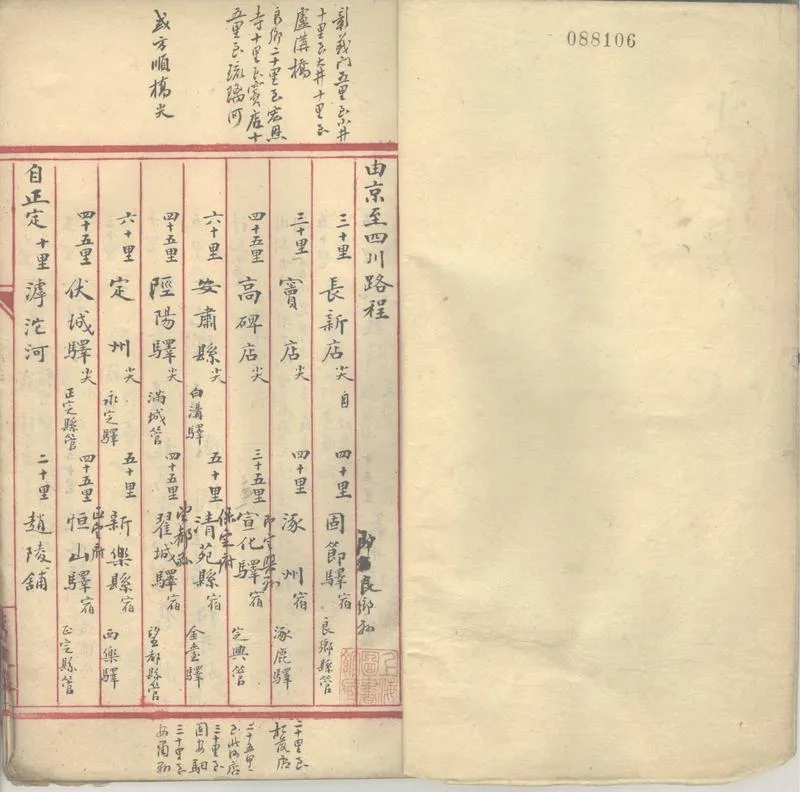 088106
彰義門五里至小井
十里至大井十里至
盧溝橋
良鄉二十里至
寺十里至竇店十
五里至琉璃河
或方順橋尖
由京至四川路程
三十里 長新店尖 自 四十里 固節驛宿 良鄉縣管
三十里 竇店尖 四十里 涿州宿 涿鹿驛
四十五里 高碑店尖 三十五里 宣化驛宿 定興管
即定興縣
六十里 安肅縣尖 白溝驛 五十里 清苑縣宿 金臺驛
保定府
四十五里 陘陽驛尖 滿城管 四十五里 翟城驛宿 望都縣管
望都縣
六十里 定州尖 永定驛 五十里 新樂縣宿 西樂驛
四十五里 伏城驛尖 正定縣管 四十五里 恒山驛宿 正定縣管
正定府
自正定十里 滹沱河 二十里 趙陵舖
二十里至
松林店
二十五里
至北河店
三十里至
固城駟
三十里至
安肅縣